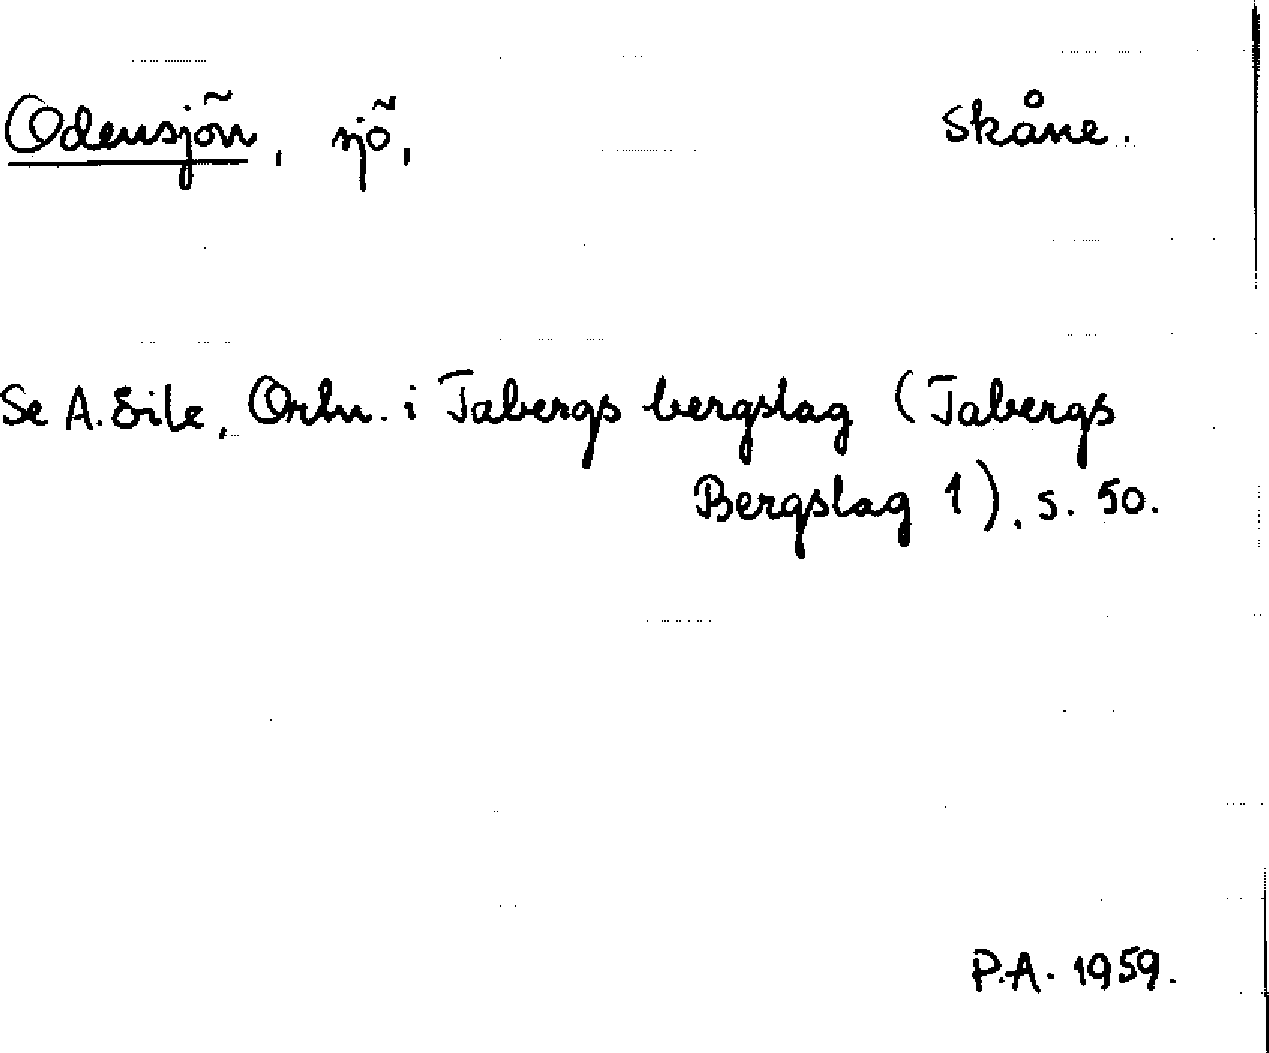 Odensjön, sjö, Skåne.
Se A. Eile, Ortn. i Tabergs bergslag (Tabergs
Bergslag 1), s. 50.
P.A. 1959.